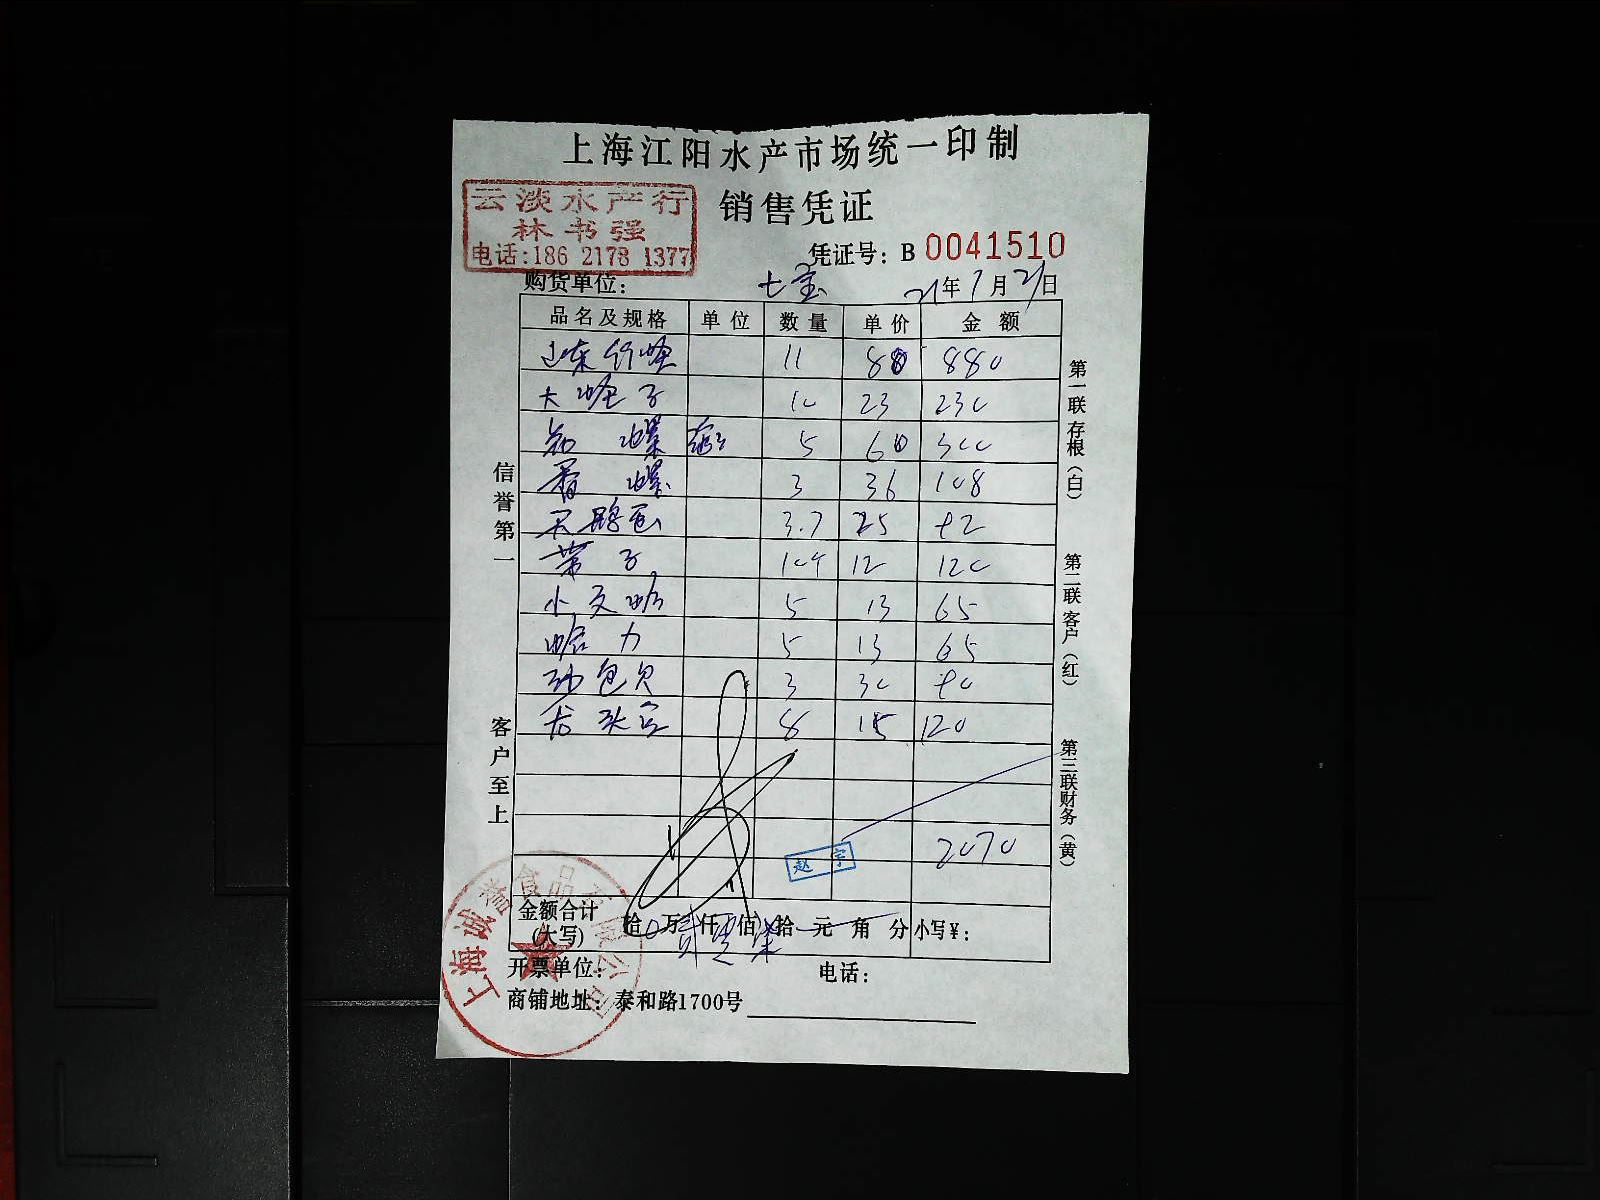 上海江阳水产市场统一印制
云淡水产行
林书强
电话:186 2178 1377
销售凭证
凭证号: B 0041510
购货单位: 七宝 21年7月21日
品名及规格 单位 数量 单价 金额
山东竹蛏 11 80 880
大蛏子 10 23 230
螺 5 60 300
香螺 3 36 108
天鹅蛋 3.7 25 92
带子 10个 12 120
小文蛤 5 13 65
蛤力 5 13 65
包贝 3 30 90
8 15 120
2070
赵宇
金额合计
(大写) 拾0万贰仟零佰柒拾元角分 小写¥:
开票单位: 电话:
商铺地址: 泰和路1700号
信誉第一
客户至上
第一联存根(白)
第二联客户(红)
第三联财务(黄)
上海诚誉食品有限公司